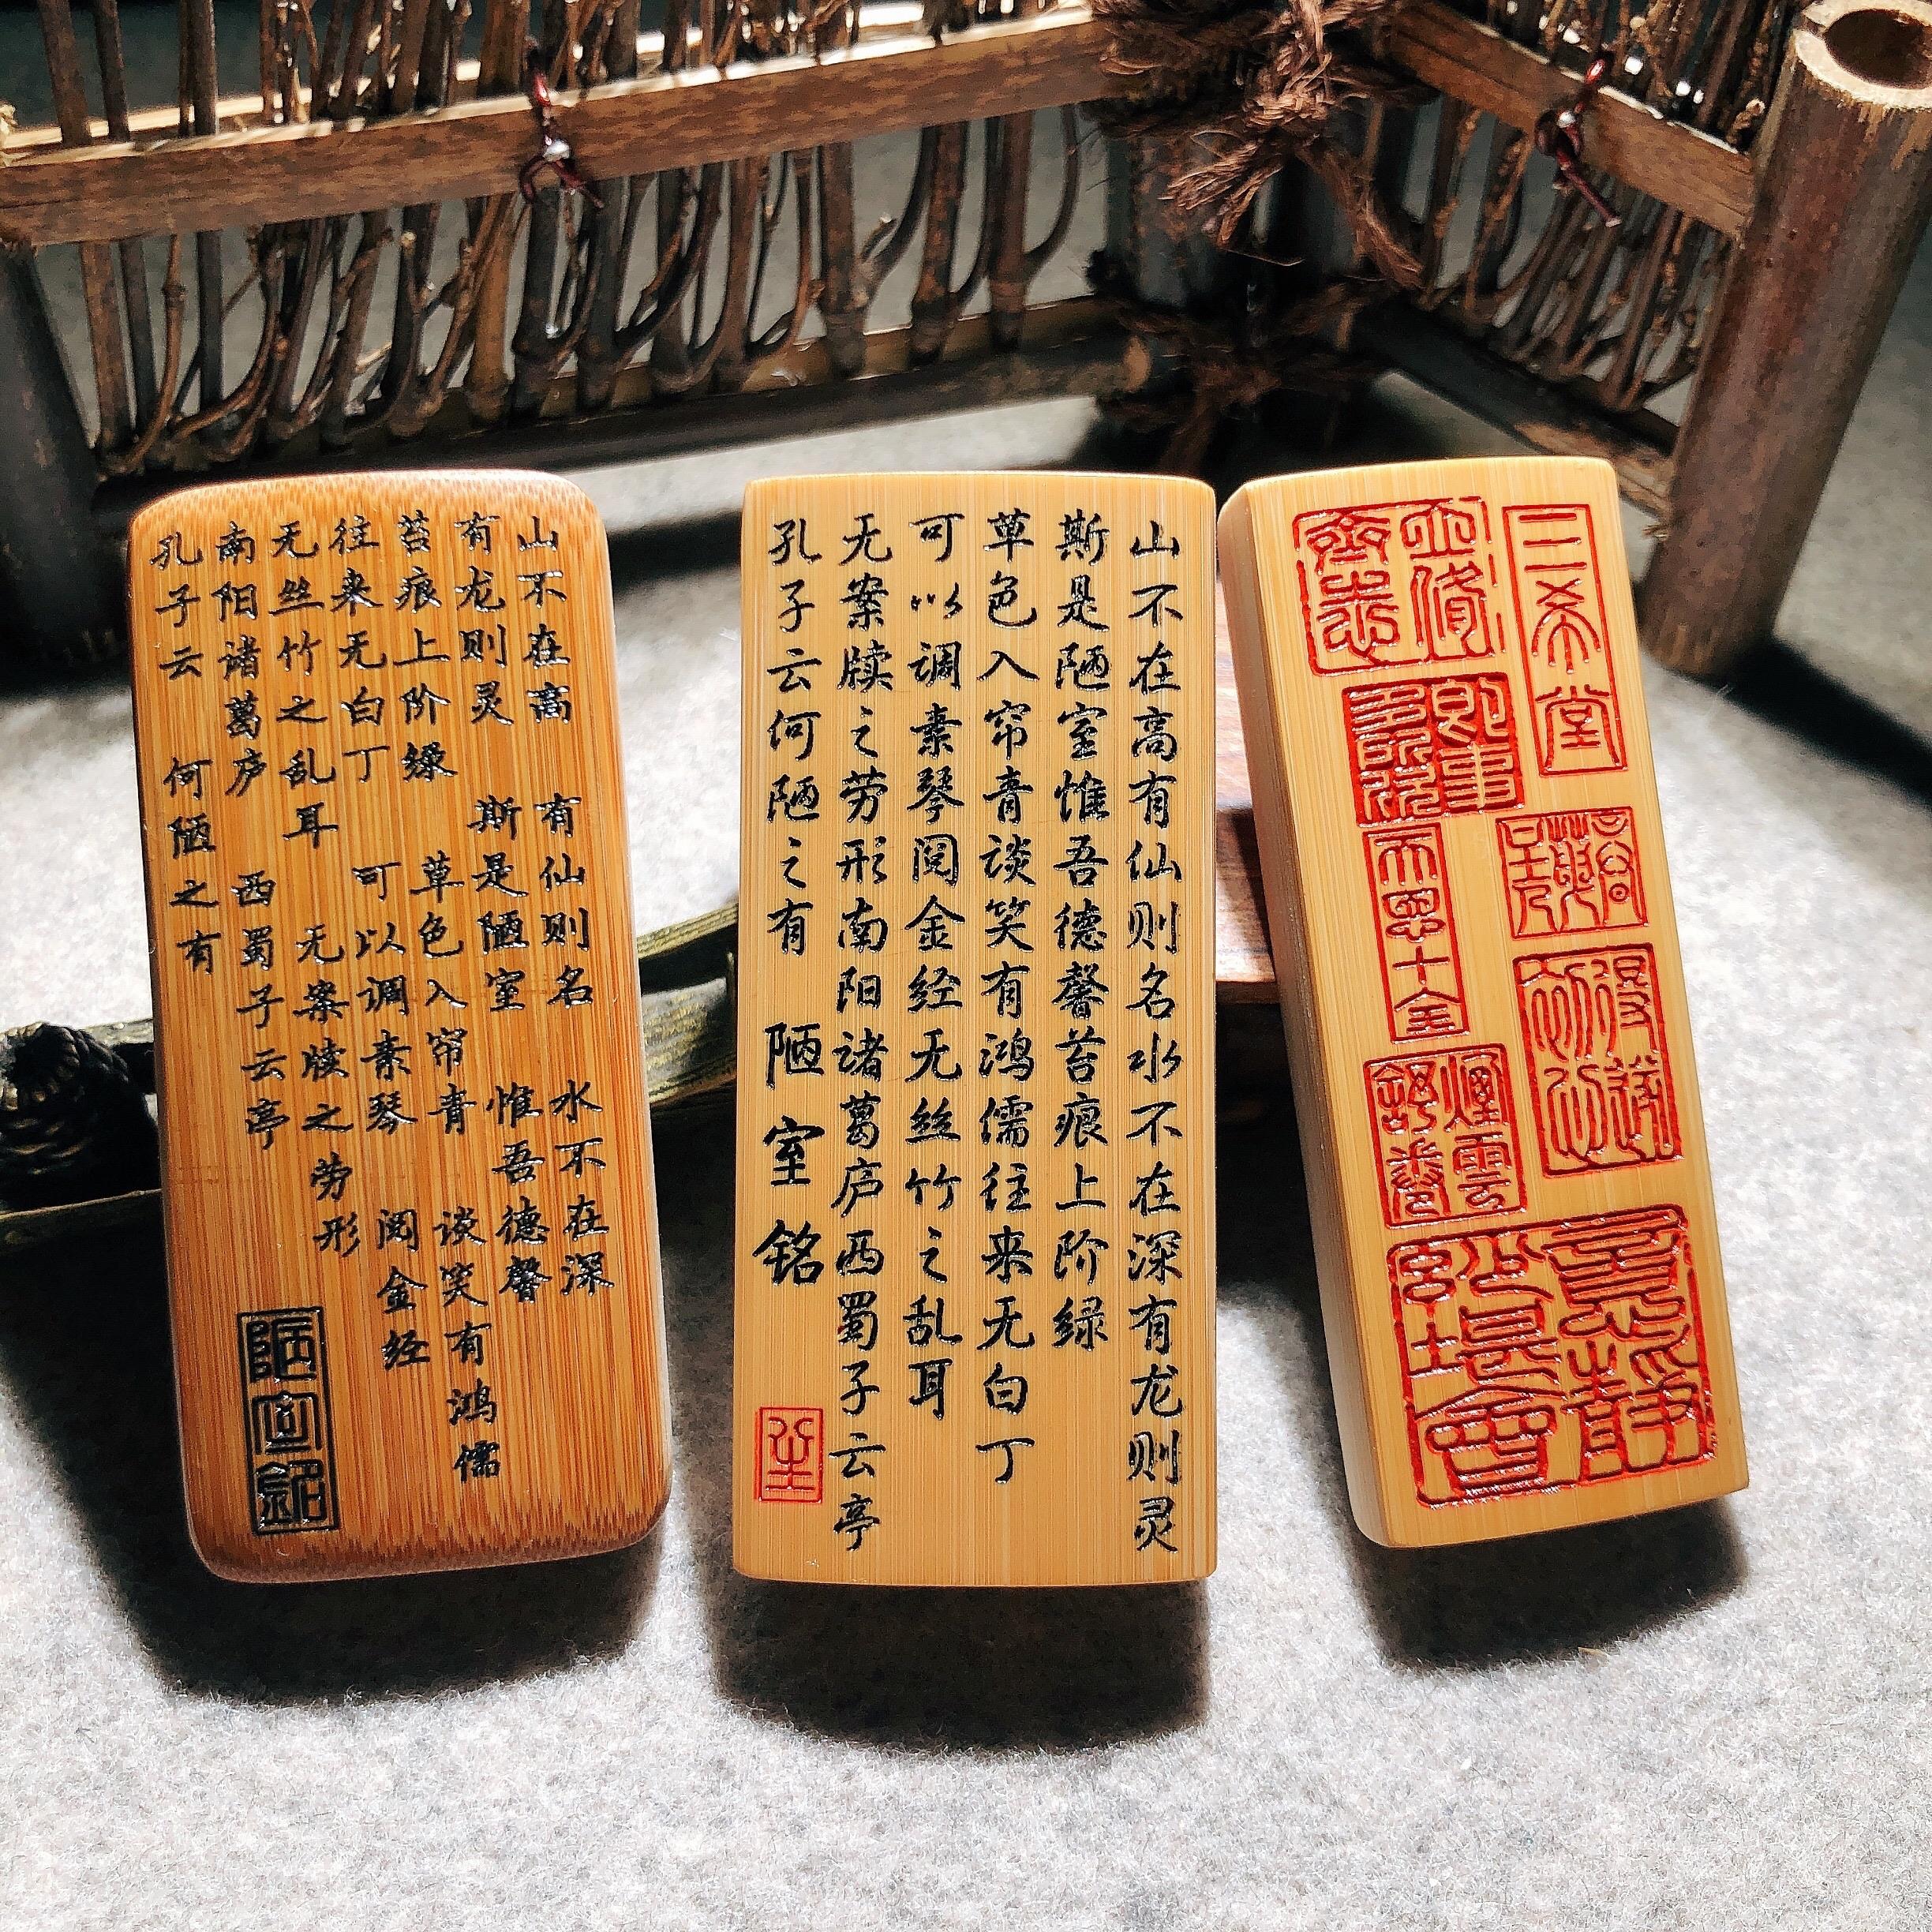 山不在高 有仙则名 水不在深
有龙则灵 斯是陋室 惟吾德馨
苔痕上阶绿 草色入帘青 谈笑有鸿儒
往来无白丁 可以调素琴 阅金经
无丝竹之乱耳 无案牍之劳形
南阳诸葛庐 西蜀子云亭
孔子云 何陋之有
陋室銘
山不在高有仙则名水不在深有龙则灵
斯是陋室惟吾德馨苔痕上阶绿
草色入帘青谈笑有鸿儒往来无白丁
可以调素琴阅金经无丝竹之乱耳
无案牍之劳形南阳诸葛庐西蜀子云亭
孔子云何陋之有 陋室铭
三希堂
即事多所欣